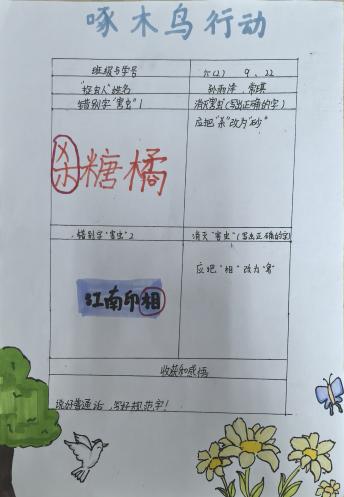 啄木鸟行动
班级与学号
六(2) 9、22
"捉虫人"姓名
错别字"害虫"1
消灭"害虫"(写出正确的字)
杀糖橘
应把"杀"改为"砂"
错别字"害虫"2
消灭"害虫"(写出正确的字)
江南印相
应把"相"改为"象"
收获和感悟
说好普通话,写好规范字!